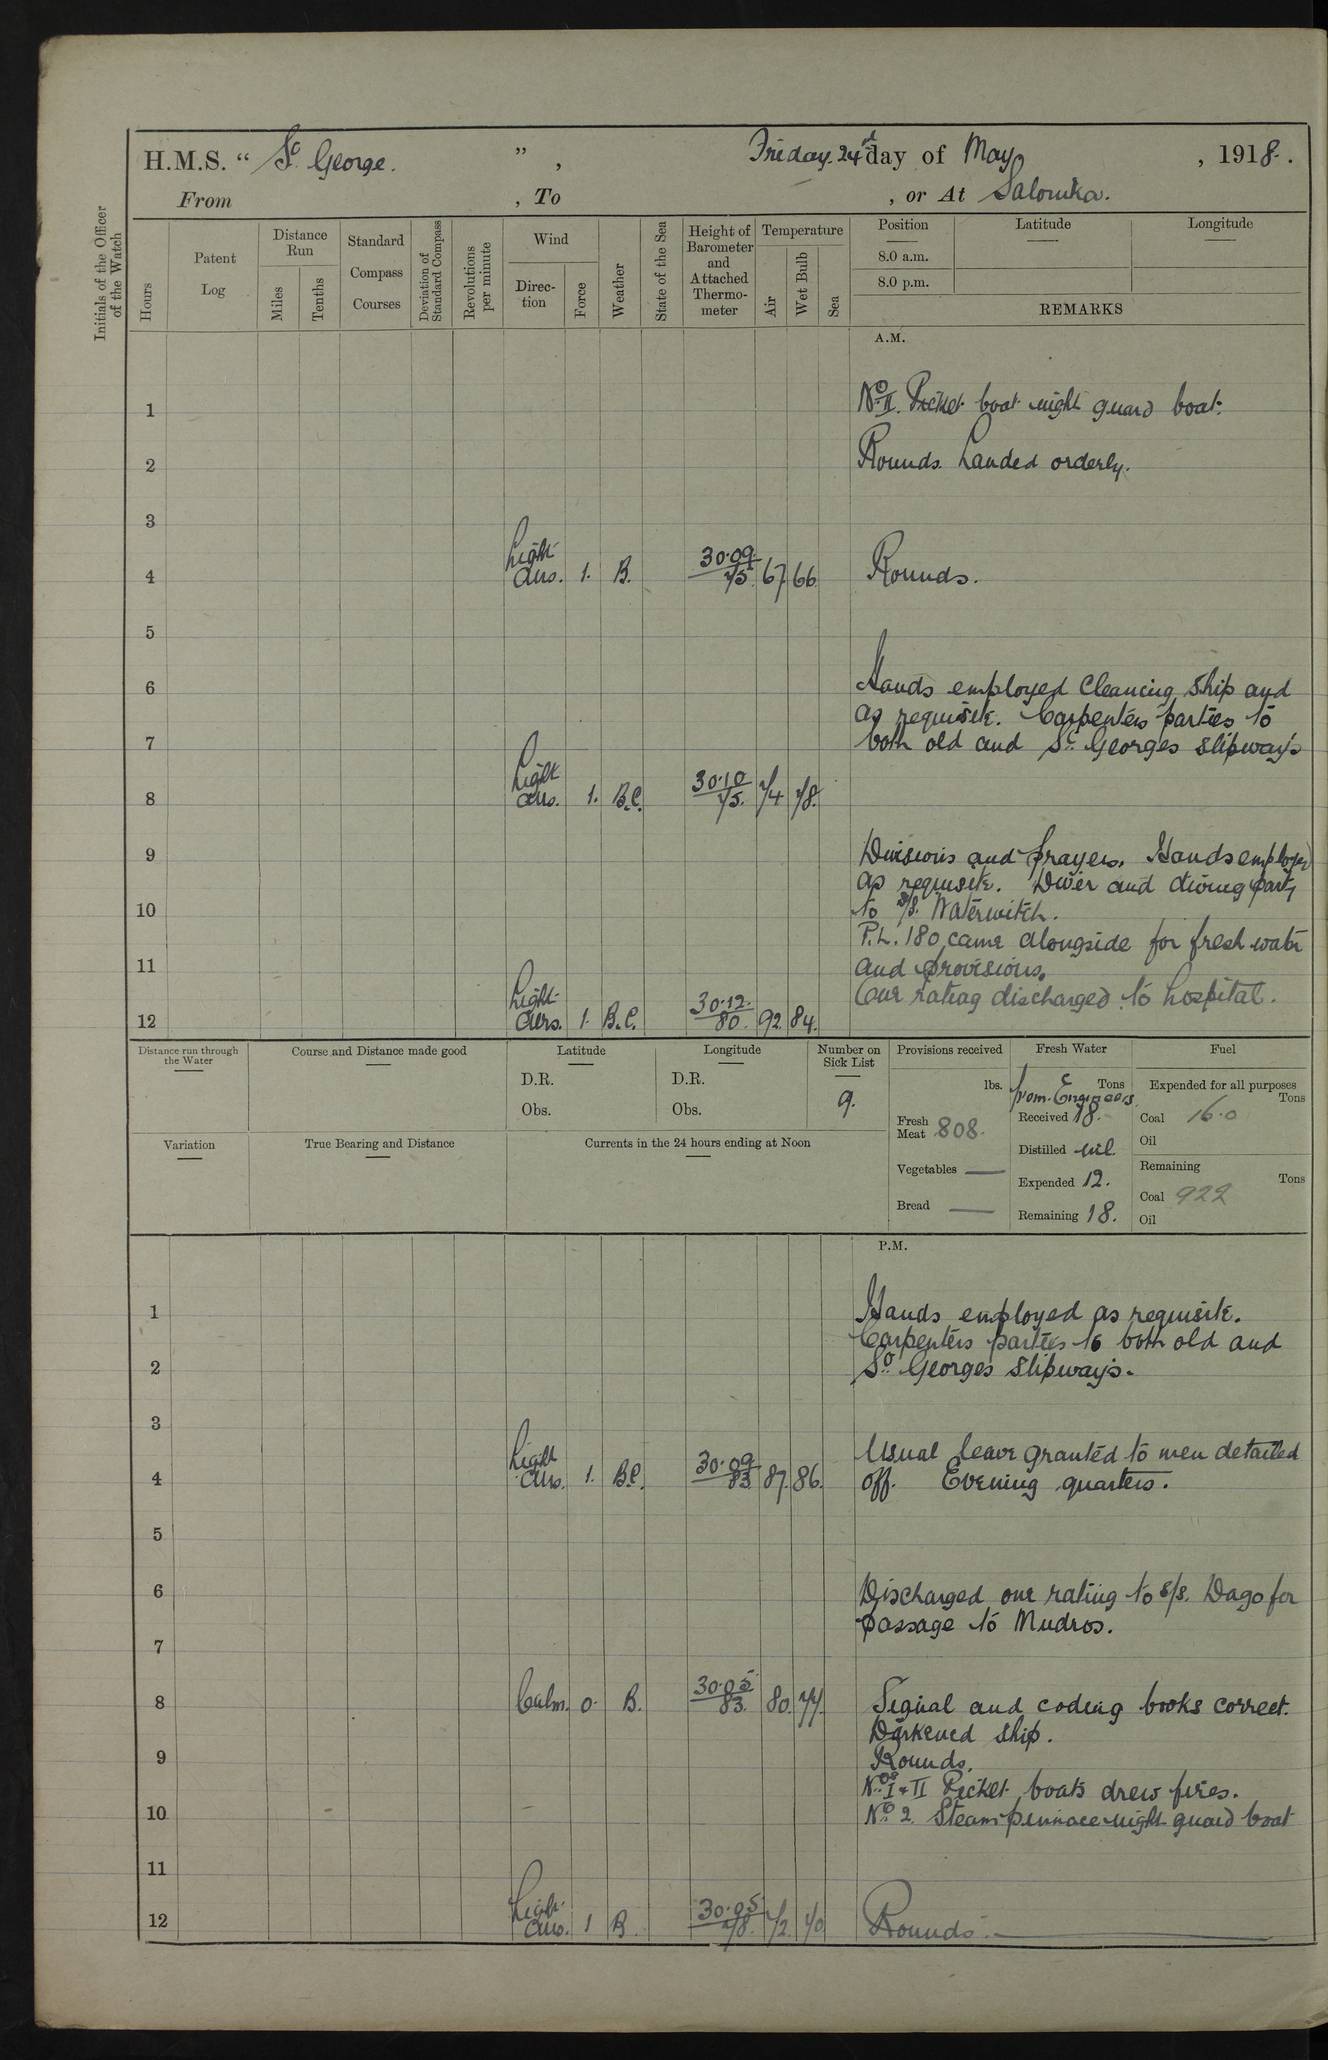 H.M.S. “ St. George. ” , Friday. 24th day of May , 1918.
From , To , or At Salonika.
Initials of the Officer of the Watch
Hours
Patent Log
Distance Run
Miles
Tenths
Standard Compass Courses
Deviation of Standard Compass
Revolutions per minute
Wind
Direction
Force
Weather
State of the Sea
Height of Barometer and Attached Thermometer
Temperature
Air
Wet Bulb
Sea
Position Latitude Longitude
8.0 a.m.
8.0 p.m.
REMARKS
A.M.
1 No. II. Picket boat night guard boat.
2 Rounds. Landed orderly.
3
4 Light airs. 1. B. 30.09 75 67 66 Rounds.
5
6 Hands employed cleaning ship and
as requisite. Carpenters parties to
7 both old and St. Georges slipways
8 Light airs. 1. B.C. 30.10 75. 74 78.
9 Divisions and prayers. Hands employed
as requisite. Diver and diving party
10 to S/S. Waterwitch.
P.L. 180 came alongside for fresh water
11 and provisions.
One rating discharged to hospital.
12 Light airs. 1. B.C. 30.12. 80. 92. 84.
Distance run through the Water
Course and Distance made good
Latitude
D.R.
Obs.
Longitude
D.R.
Obs.
Number on Sick List
9.
Provisions received
lbs.
Fresh Meat 808.
Vegetables —
Bread —
Fresh Water
Tons
from Engineers
Received 18.
Distilled nil.
Expended 12.
Remaining 18.
Fuel
Expended for all purposes
Tons
Coal 16.0
Oil
Remaining
Tons
Coal 922
Oil
Variation
True Bearing and Distance
Currents in the 24 hours ending at Noon
P.M.
1 Hands employed as requisite.
Carpenters parties to both old and
2 St. Georges slipways.
3
Usual leave granted to men detailed
4 Light airs. 1. B.C. 30.09 83 87. 86. off. Evening quarters.
5
6 Discharged one rating to S/S. Dago for
passage to Mudros.
7
8 Calm. 0. B. 30.05 83. 80. 77. Signal and coding books correct.
Darkened ship.
9 Rounds.
Nos. I & II Picket boats drew fires.
10 No. 2. Steam pinnace night guard boat
11
12 Light airs. 1 B. 30.05 78. 72. 70 Rounds.